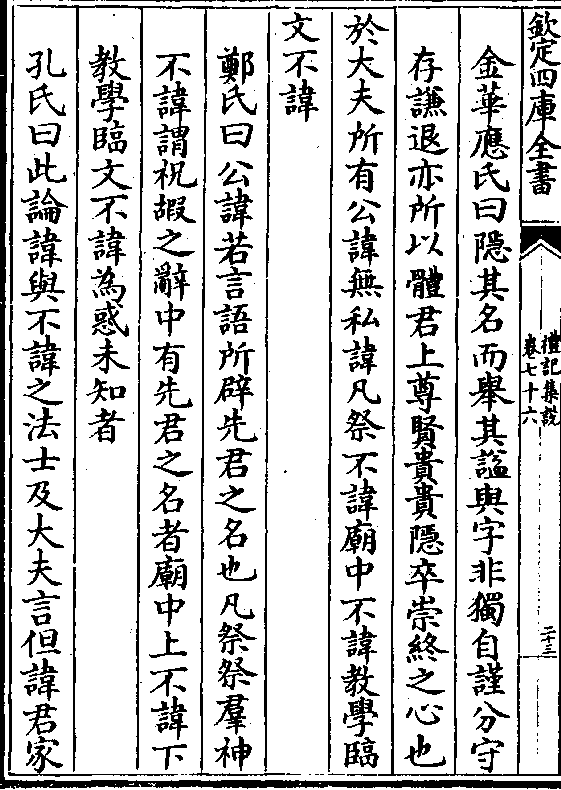 欽定四庫全書
禮記集說
卷七十六
二十三
金華應氏曰隱其名而舉其諡與字非獨自謹分守
存謙退亦所以體君上尊賢貴貴隱卒崇終之心也
於大夫所有公諱無私諱凡祭不諱廟中不諱教學臨
文不諱
鄭氏曰公諱若言語所辟先君之名也凡祭祭羣神
不諱謂祝嘏之辭中有先君之名者廟中上不諱下
教學臨文不諱為惑未知者
孔氏曰此論諱與不諱之法士及大夫言但諱君家